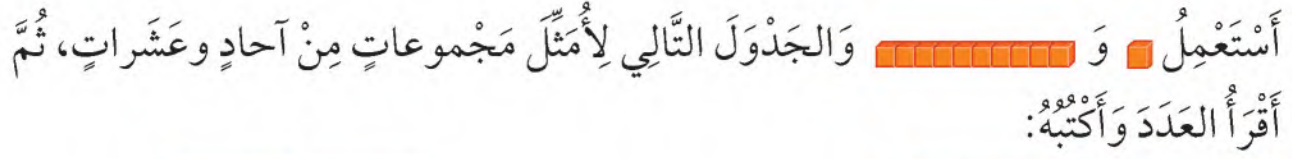 أَسْتَعْمِلُ وَ وَالجَدْوَلَ التَّالِي لِأُمَثِّلَ مَجْموعاتٍ مِنْ آحادٍ وعَشَراتٍ، ثُمَّ
أَقْرَأُ العَدَدَ وَأَكْتُبُهُ: